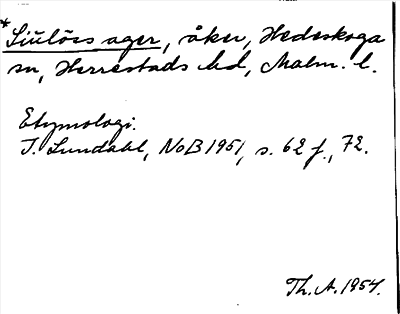 *Siúlöss ager, åker, Hedeskoga
sn, Herrestads hd, Malm. l.
Etymologi.
I. Lundahl, NoB 1951, s. 62 f., 72.
Th. A. 1954.